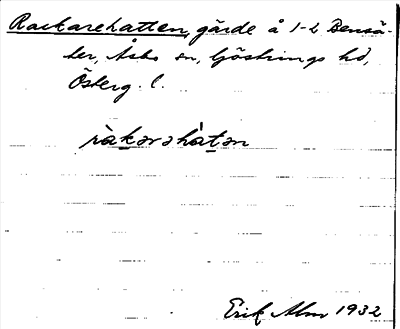 Rackarehatten, gärde å 1-2 Bensä-
ter, Åsbo sn, Göstrings hd,
Österg. l.
ràkarahàtan
Erik Alm 1932